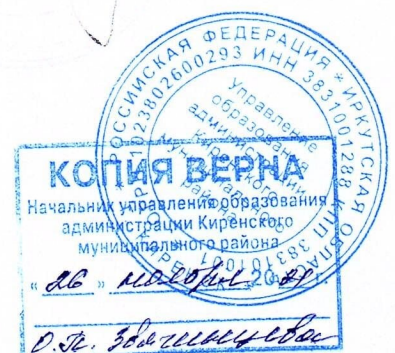 РОССИЙСКАЯ ФЕДЕРАЦИЯ * ИРКУТСКАЯ ОБЛА
1023802600293 ИНН 3831001288 КПП 383101001
Управление
образования
администрации
Киренского
КОПИЯ ВЕРНА
Начальник управления образования
администрации Киренского
муниципального района
« 26 » ноября 20
О.П. Звягинцева